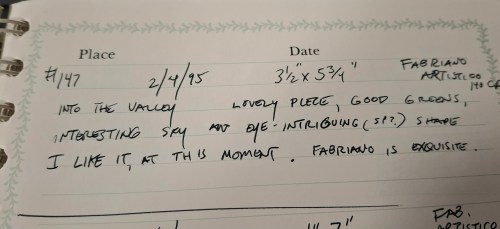 Place Date
#147 2/4/95 3½" x 5¾" FABRIANO
ARTISTICO
140 CP
INTO THE VALLEY LOVELY PIECE, GOOD GREENS,
INTERESTING SKY AN EYE-INTRIGUING (SP?) SHAPE
I LIKE IT, AT THIS MOMENT. FABRIANO IS EXQUISITE.
FAB.
ARTISTICO